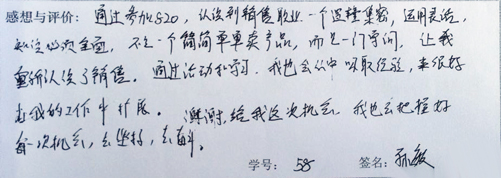 感想与评价：通过参加S20，认识到销售职业一个逻辑集密，运用灵活，
知识必须全面，不是一个简简单单卖产品，而是一门学问，让我
重新认识了销售。通过活动和学习，我也会从中吸取经验，来很好
在我的工作中扩展。谢谢，给我这次机会，我也会把握好
每一次机会，去坚持，去奋斗。
学号：58 签名：孙敏